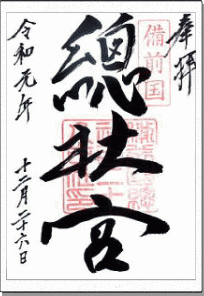 奉拝
備前国
總社宮
令和元年
十二月二十六日